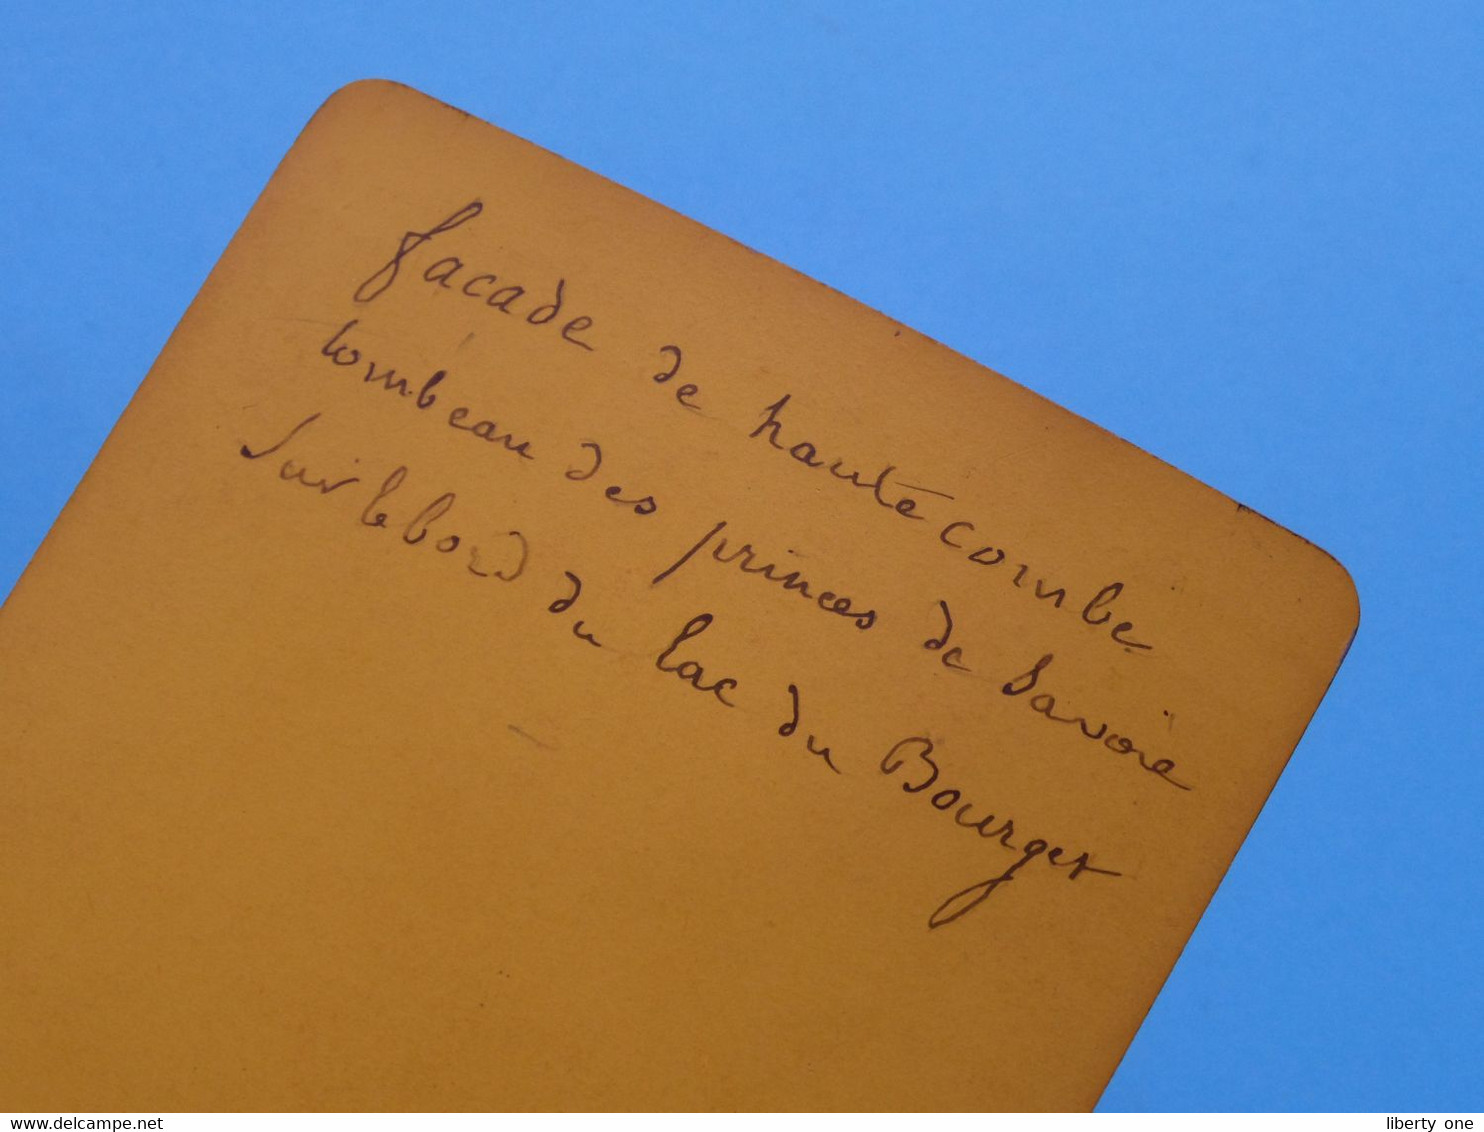 facade de hauté combe
tombeau des princes de Savoie
Sur le bord du lac du Bourget
www.delcampe.net
liberty one